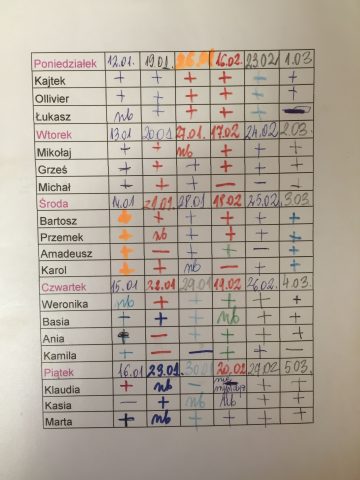 Poniedziałek 12.01. 19.01. 26.01 16.02. 23.02 1.03
Kajtek + + + + - +
Ollivier + + + + + +
Łukasz nb + + + + -
Wtorek 13.01 20.01 27.01. 17.02 24.02 2.03.
Mikołaj + + nb + + +
Grześ + + + + + +
Michał + + + - - +
Środa 14.01 21.01. 28.01 18.02 25.02 3.03
Bartosz + + + + + +
Przemek + nb + + + +
Amadeusz + - + + - +
Karol + + nb - + +
Czwartek 15.01 22.01 29.01 19.02 26.02. 4.03.
Weronika nb + + + + +
Basia + + + nb + +
Ania + - + + + +
Kamila + - - + + -
Piątek 16.01 23.01. 30.01 20.02 27.02 5.03.
Klaudia + nb + + +
Kasia - + nb nb + +
Marta + nb + + + +